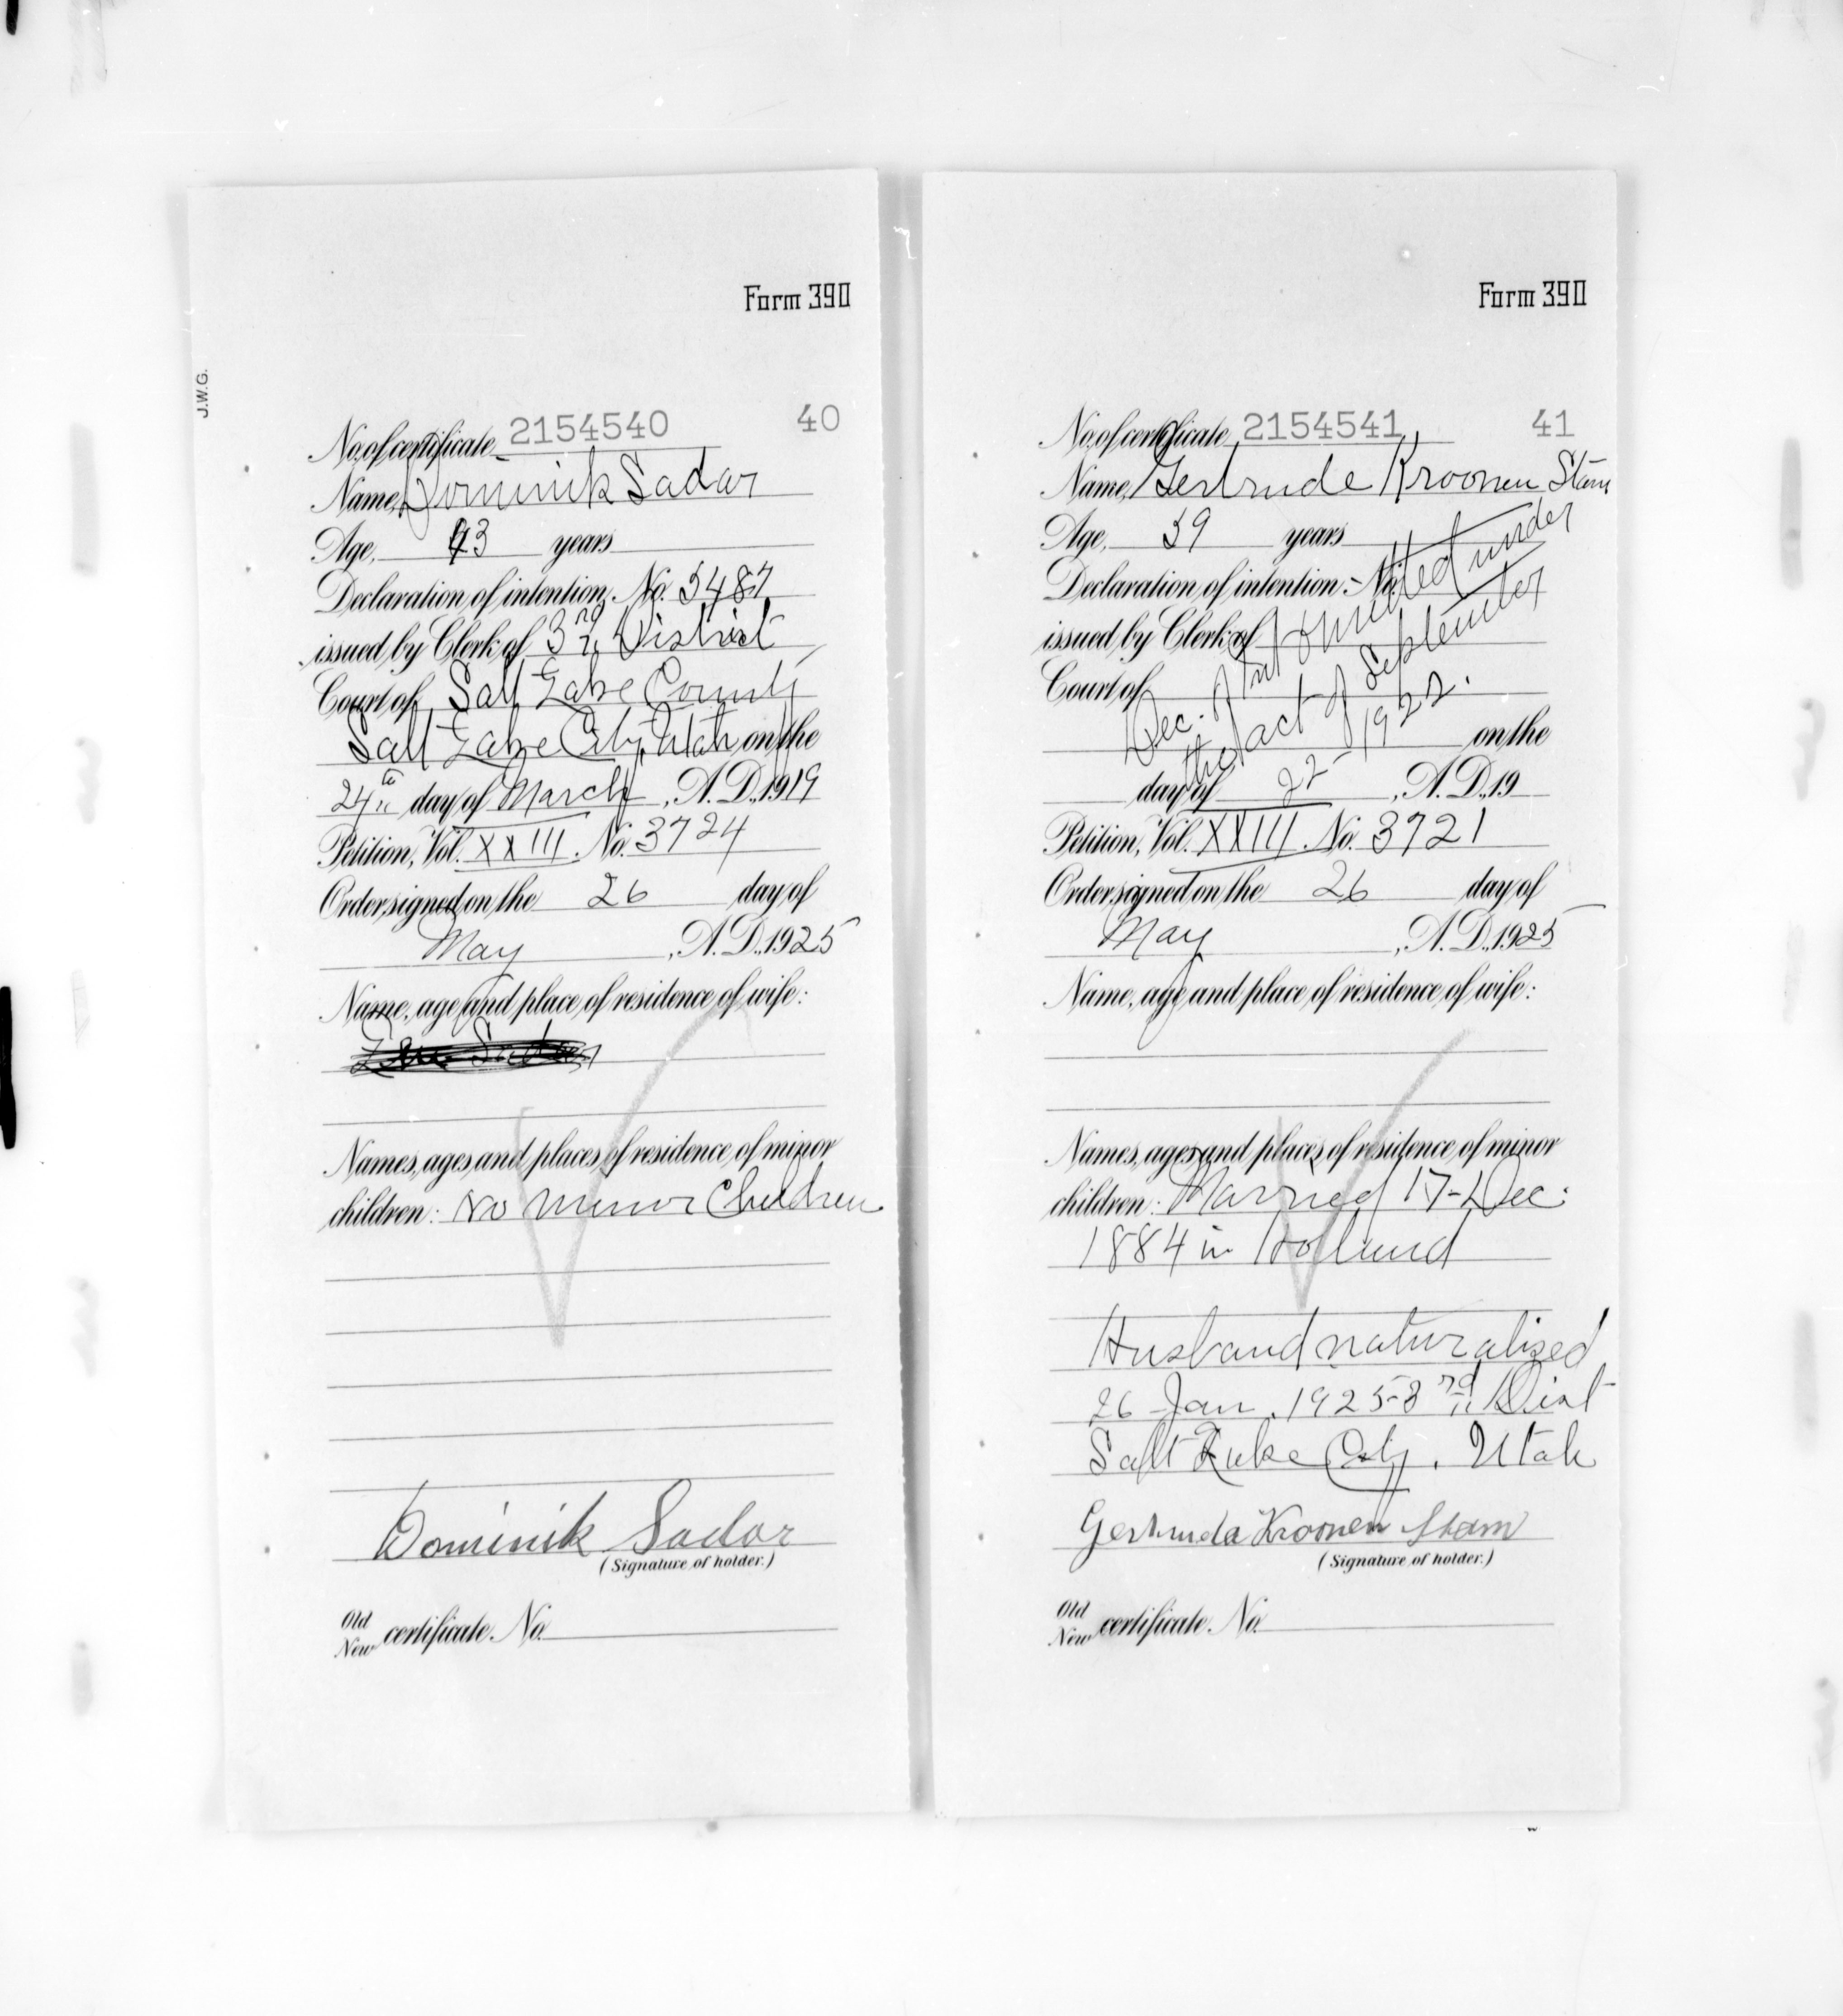 Form 390
J.W.G.
No. of certificate 2154540 40
Name, Dominik Sadar
Age, 43 years
Declaration of intention, No. 5487
issued by Clerk of 3rd District
Court of Salt Lake County
Salt Lake City, Utah on the
24th day of March, A.D., 1919
Petition, Vol. XXIII. No. 3724
Order signed on the 26 day of
May, A.D., 1925
Name, age and place of residence of wife:
Names, ages and places of residence of minor
children: No minor Children
Dominik Sadar
(Signature of holder.)
Old
New certificate No.
Form 390
No. of certificate 2154541 41
Name, Gertrude Kroonen Stam
Age, 59 years
Declaration of intention: No.
issued by Clerk of
Court of
on the
day of , A.D., 19
Dec. of Int omitted under
the act of September
22 - 1922.
Petition, Vol. XXIII. No. 3721
Order signed on the 26 day of
May, A.D., 1925
Name, age and place of residence of wife:
Names, ages and places of residence of minor
children: Married 17-Dec.
1884 in Holland
Husband naturalized
26 Jan. 1925-3rd Dist
Salt Lake City. Utah
Gertruda Kroonen Stam
(Signature of holder.)
Old
New certificate No.